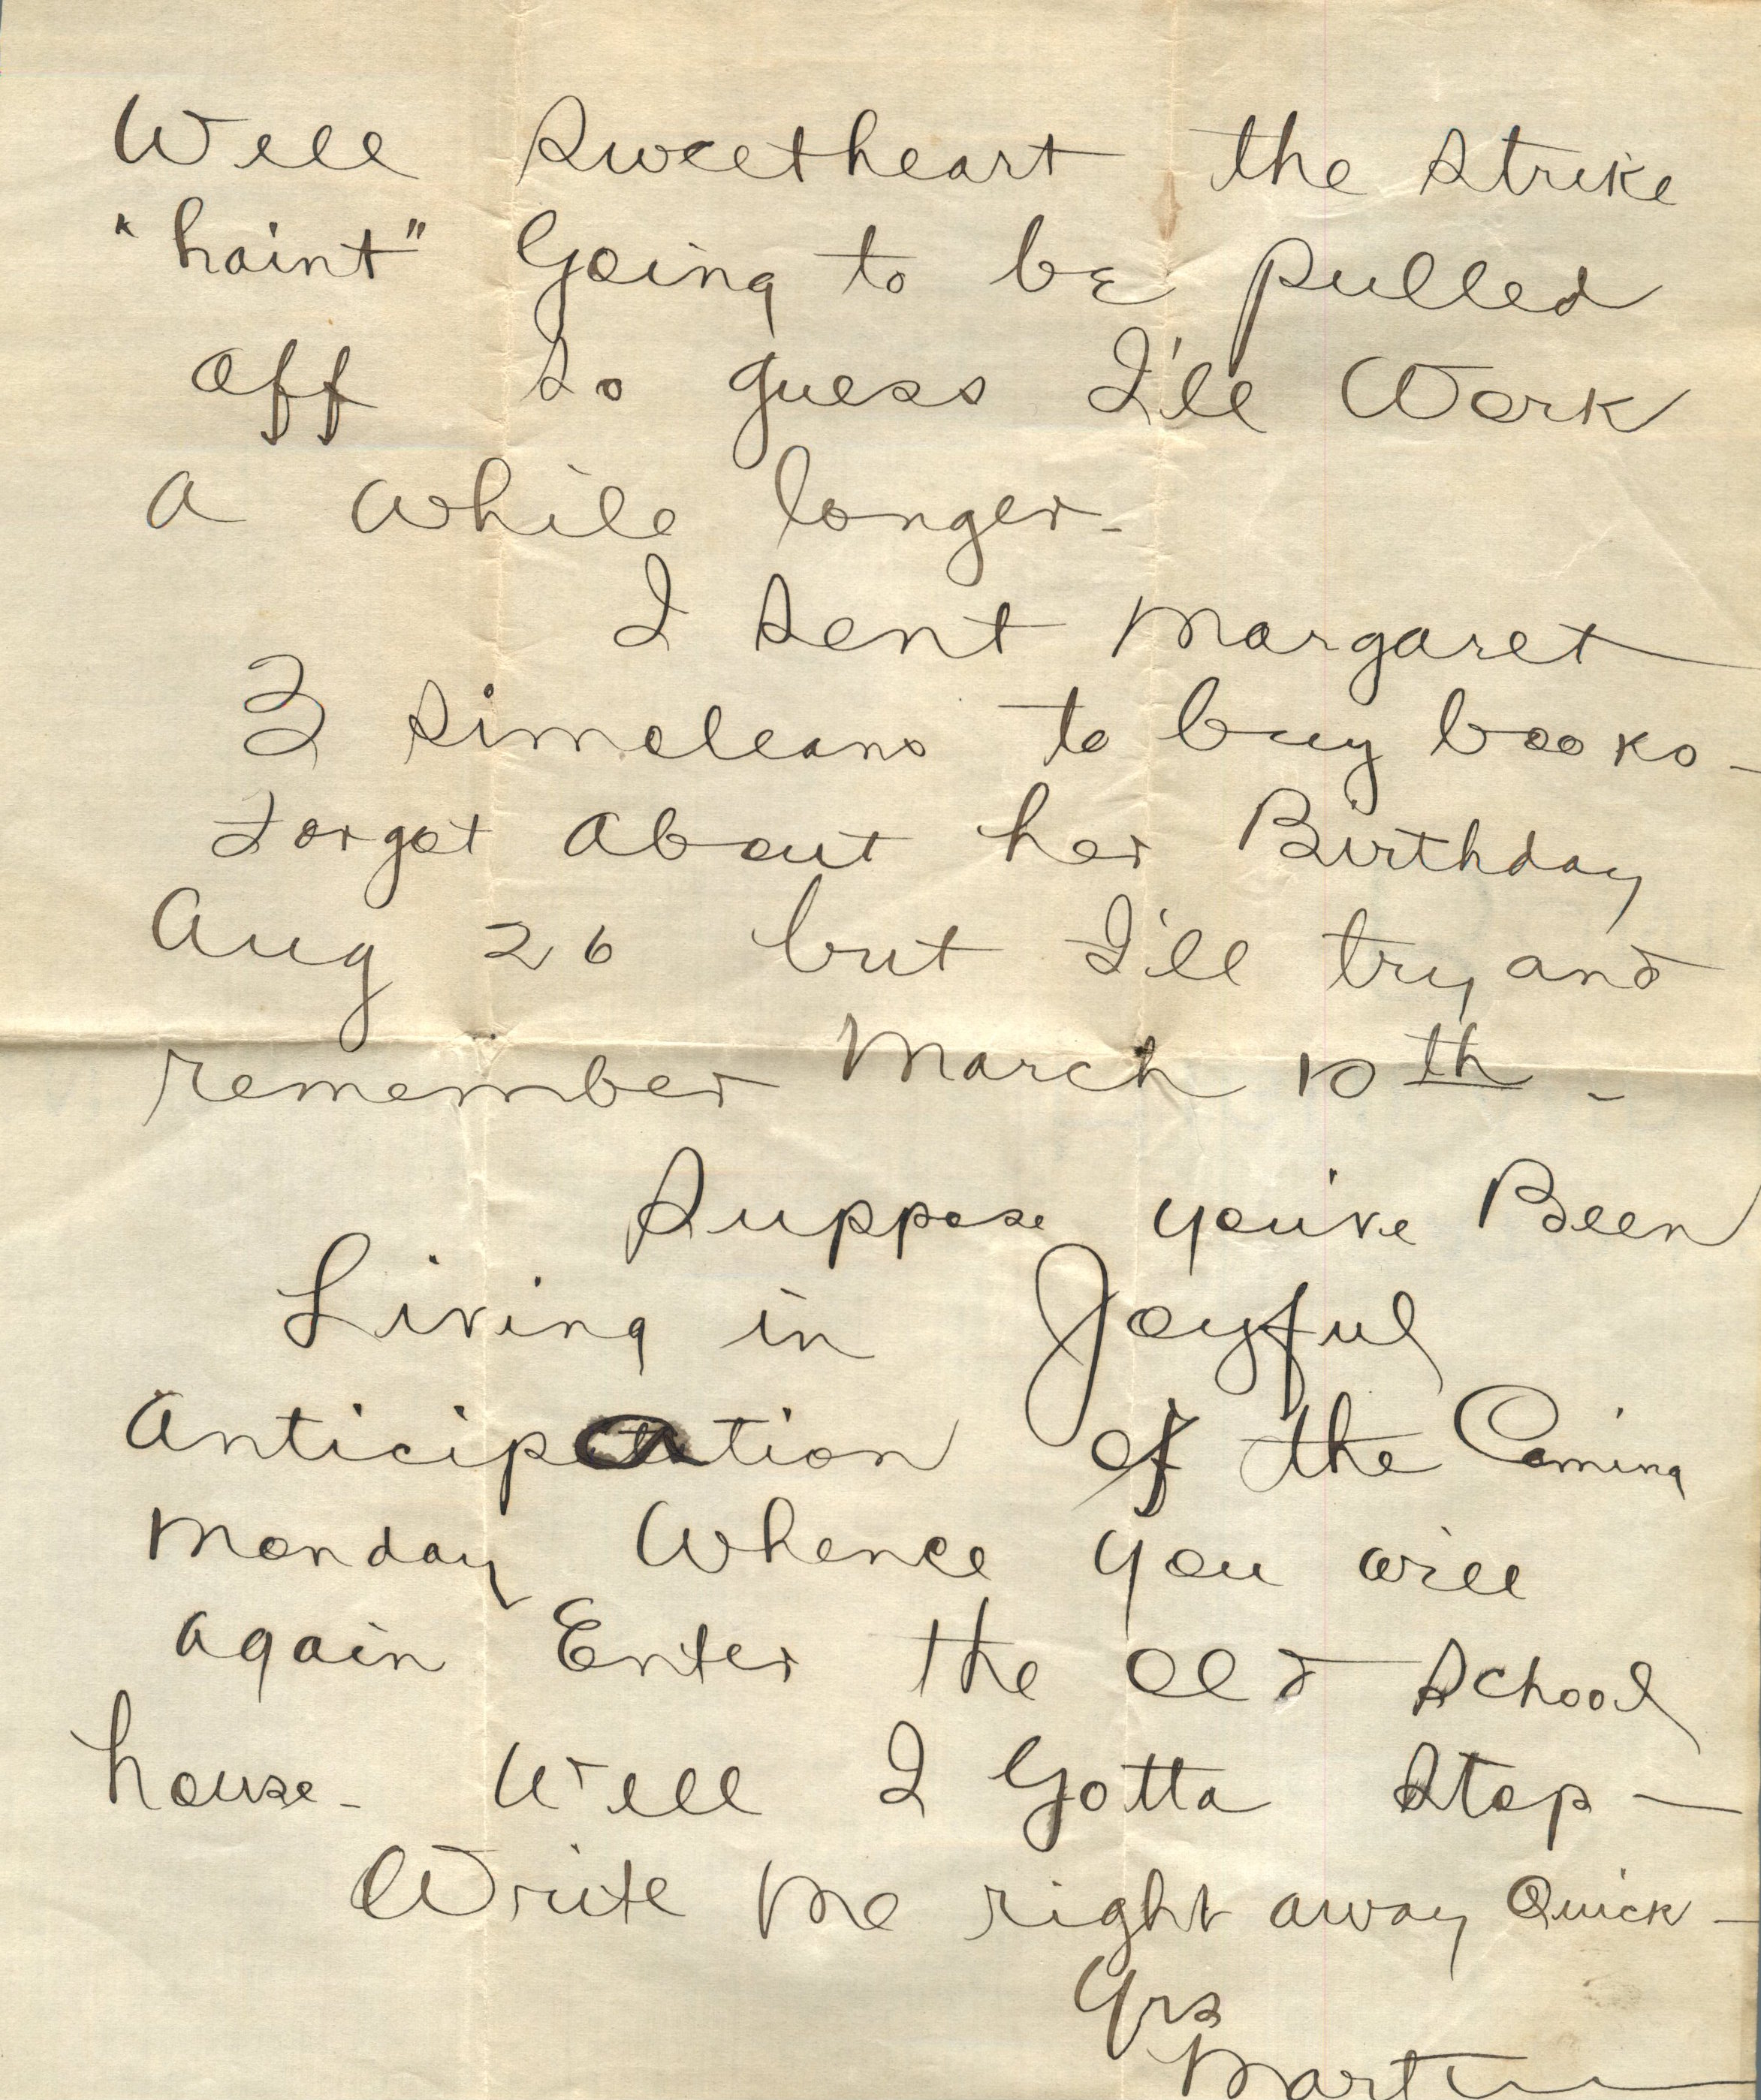 Well Sweetheart the strike
"haint" Going to be pulled
off so guess I'll Work
a while longer-
I sent Margaret
3 simoleans to buy books-
Forgot about her Birthday
Aug 26 but I'll try and
remember March 10th -
Suppose you've Been
Living in Joyful
Anticipation of the Coming
Monday Whence you will
again Enter the old School
house- Well I Gotta Stop -
Write Me right away Quick -
Yrs
Martin